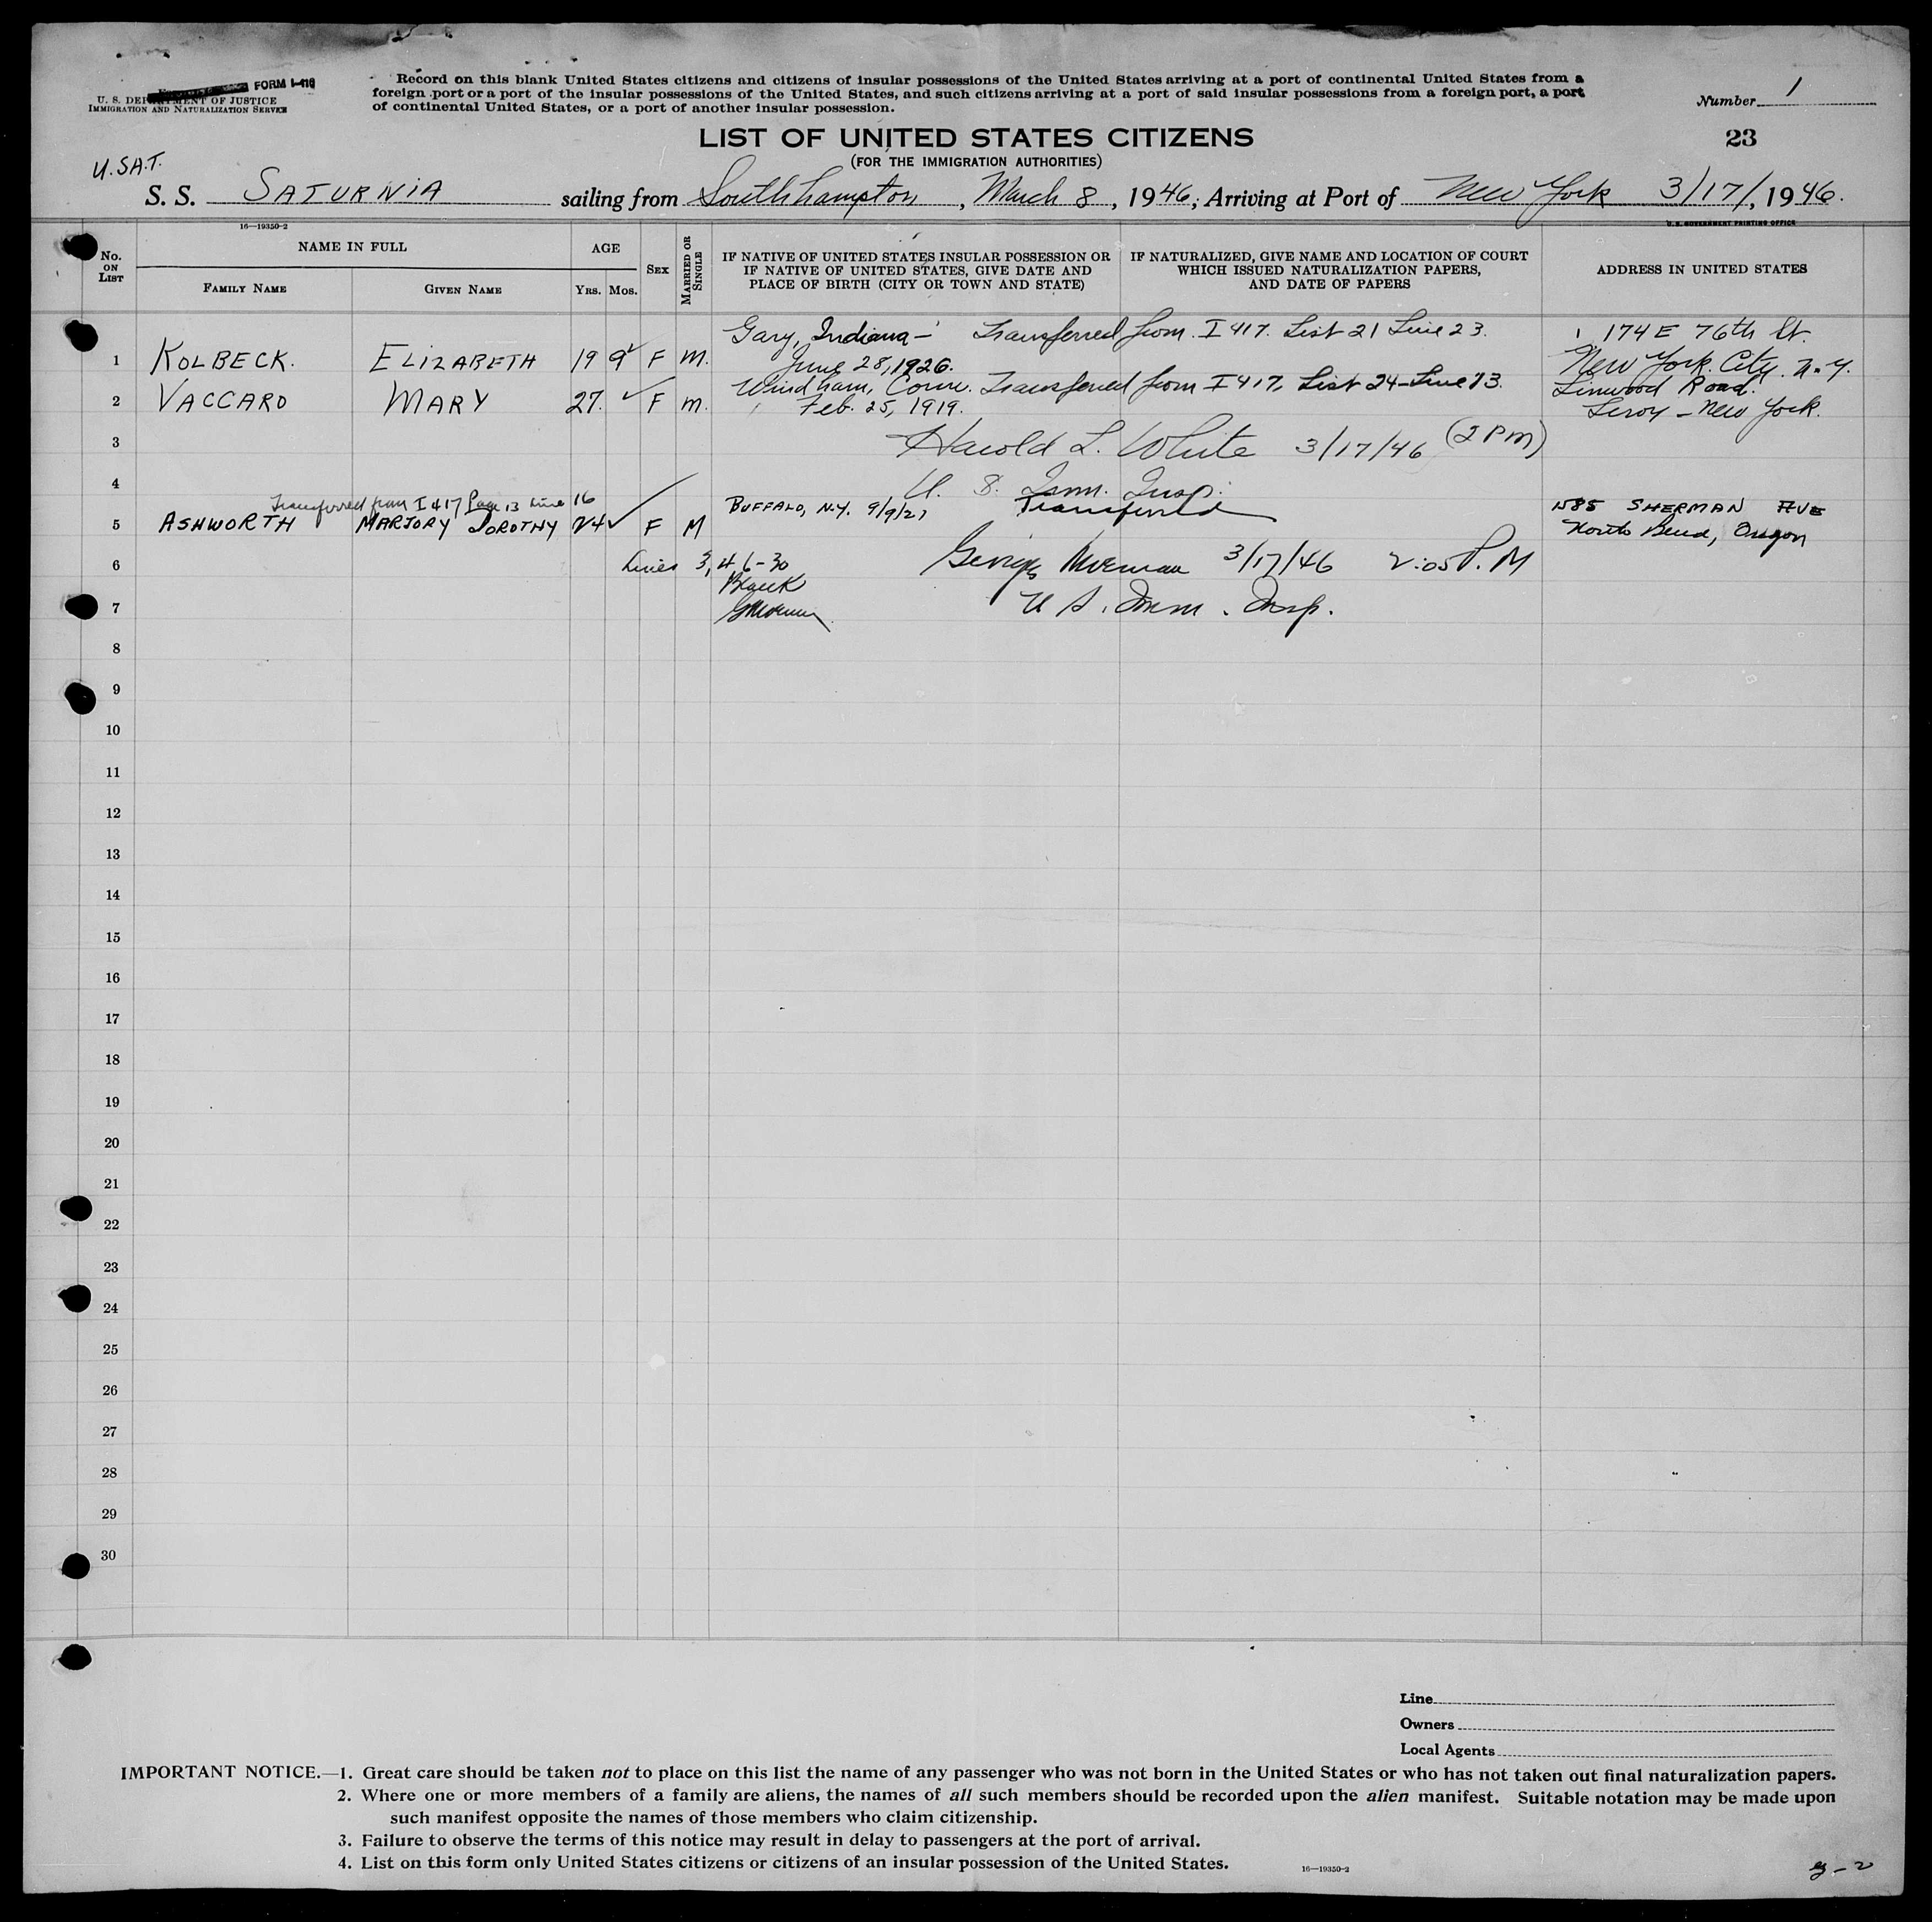 FORM I-416
U. S. DEPARTMENT OF JUSTICE
IMMIGRATION AND NATURALIZATION SERVICE
Record on this blank United States citizens and citizens of insular possessions of the United States arriving at a port of continental United States from a
foreign port or a port of the insular possessions of the United States, and such citizens arriving at a port of said insular possessions from a foreign port, a port
of continental United States, or a port of another insular possession.
Number 1
LIST OF UNITED STATES CITIZENS
23
(FOR THE IMMIGRATION AUTHORITIES)
U.S.A.T.
S. S. SATURNIA sailing from Southhampton, March 8, 1946, Arriving at Port of New York 3/17/, 1946.
16—19350-2
U. S. GOVERNMENT PRINTING OFFICE
No. ON LIST
NAME IN FULL
FAMILY NAME
GIVEN NAME
AGE
YRS. MOS.
SEX
MARRIED OR SINGLE
IF NATIVE OF UNITED STATES INSULAR POSSESSION OR
IF NATIVE OF UNITED STATES, GIVE DATE AND
PLACE OF BIRTH (CITY OR TOWN AND STATE)
IF NATURALIZED, GIVE NAME AND LOCATION OF COURT
WHICH ISSUED NATURALIZATION PAPERS,
AND DATE OF PAPERS
ADDRESS IN UNITED STATES
Gary, Indiana - Transferred from I 417. List 21 Line 23. 174 E 76th St.
1 KOLBECK. ELIZABETH 19 9 F M. June 28, 1926. New York City. N.Y.
Windham, Conn. Transferred from I 417. List 24-Line 13. Linwood Road.
2 VACCARO MARY 27. F M. Feb. 25, 1919. Leroy - New York.
3 Harold L. White 3/17/46 (2 PM)
4 U. S. Imm. Insp.
Transferred from I 417 Page 13 Line 16
BUFFALO, N.Y. 9/9/21 Transferred 1585 SHERMAN AVE
5 ASHWORTH MARJORY DOROTHY 24 F M North Bend, Oregon
6 Lines 3, 4 6-30 3/17/46 2:05 P.M
Blank
7 U S. Imm. Insp.
8
9
10
11
12
13
14
15
16
17
18
19
20
21
22
23
24
25
26
27
28
29
30
Line
Owners
Local Agents
IMPORTANT NOTICE.—1. Great care should be taken not to place on this list the name of any passenger who was not born in the United States or who has not taken out final naturalization papers.
2. Where one or more members of a family are aliens, the names of all such members should be recorded upon the alien manifest. Suitable notation may be made upon
such manifest opposite the names of those members who claim citizenship.
3. Failure to observe the terms of this notice may result in delay to passengers at the port of arrival.
4. List on this form only United States citizens or citizens of an insular possession of the United States.
16—19350-2